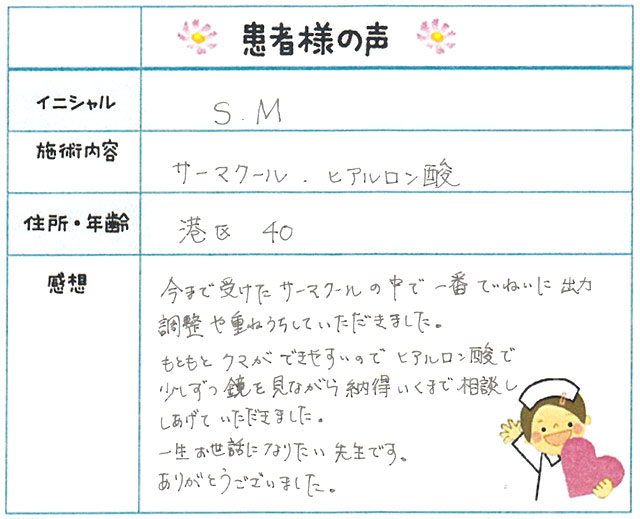 患者様の声
イニシャル
S.M
施術内容
サーマクール.ヒアルロン酸
住所・年齢
港区 40
感想
今まで受けたサーマクールの中で一番ていねいに出力
調整や重ねうちしていただきました。
もともとクマができやすいのでヒアルロン酸で
少しずつ鏡を見ながら納得いくまで相談し
しあげていただきました。
一生お世話になりたい先生です。
ありがとうございました。